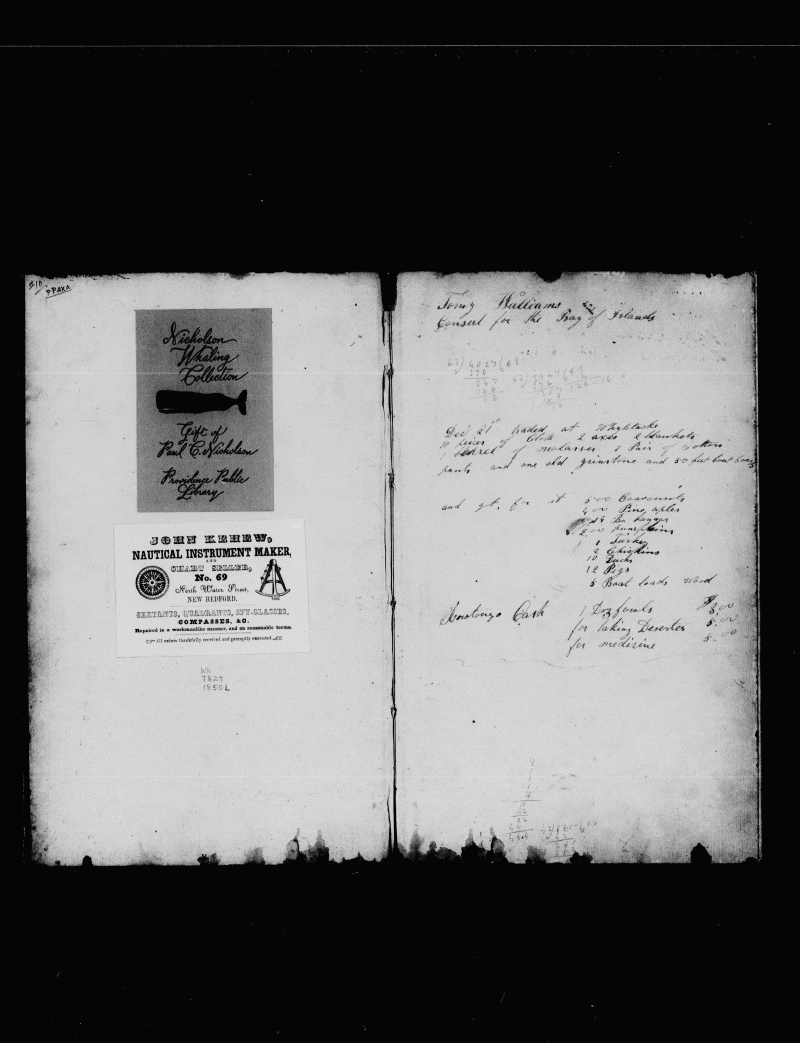 210
PPAXA
Nicholson
Whaling
Collection
Gift of
Paul C. Nicholson
Providence Public
Library
JOHN KEHEW,
NAUTICAL INSTRUMENT MAKER,
AND
CHART SELLER,
No. 69
North Water Street,
NEW BEDFORD.
SEXTANTS, QUADRANTS, SPY-GLASSES,
COMPASSES, &C.
Repaired in a workmanlike manner, and on reasonable terms.
All orders thankfully received and promptly executed
Wh
T827
1850L
Tomy Williams
Consul for the Bay of Islands
Dec 21st traded at
11 peices of Cloth 2 axes 2 blankets
1 barrel of molasses 1 Pair of cotton
pants and one old grinstone and 50 feet boat boards
and got for it 500 Cocoanuts
Pine aples
2.00 pumpkins
1 Turkey
2 Chickins
10 Ducks
12 Pigs
5 Boat loads wood
Cash 1 Doz fowls 3,00
for taking Deserter 5.00
for medisine 5.00